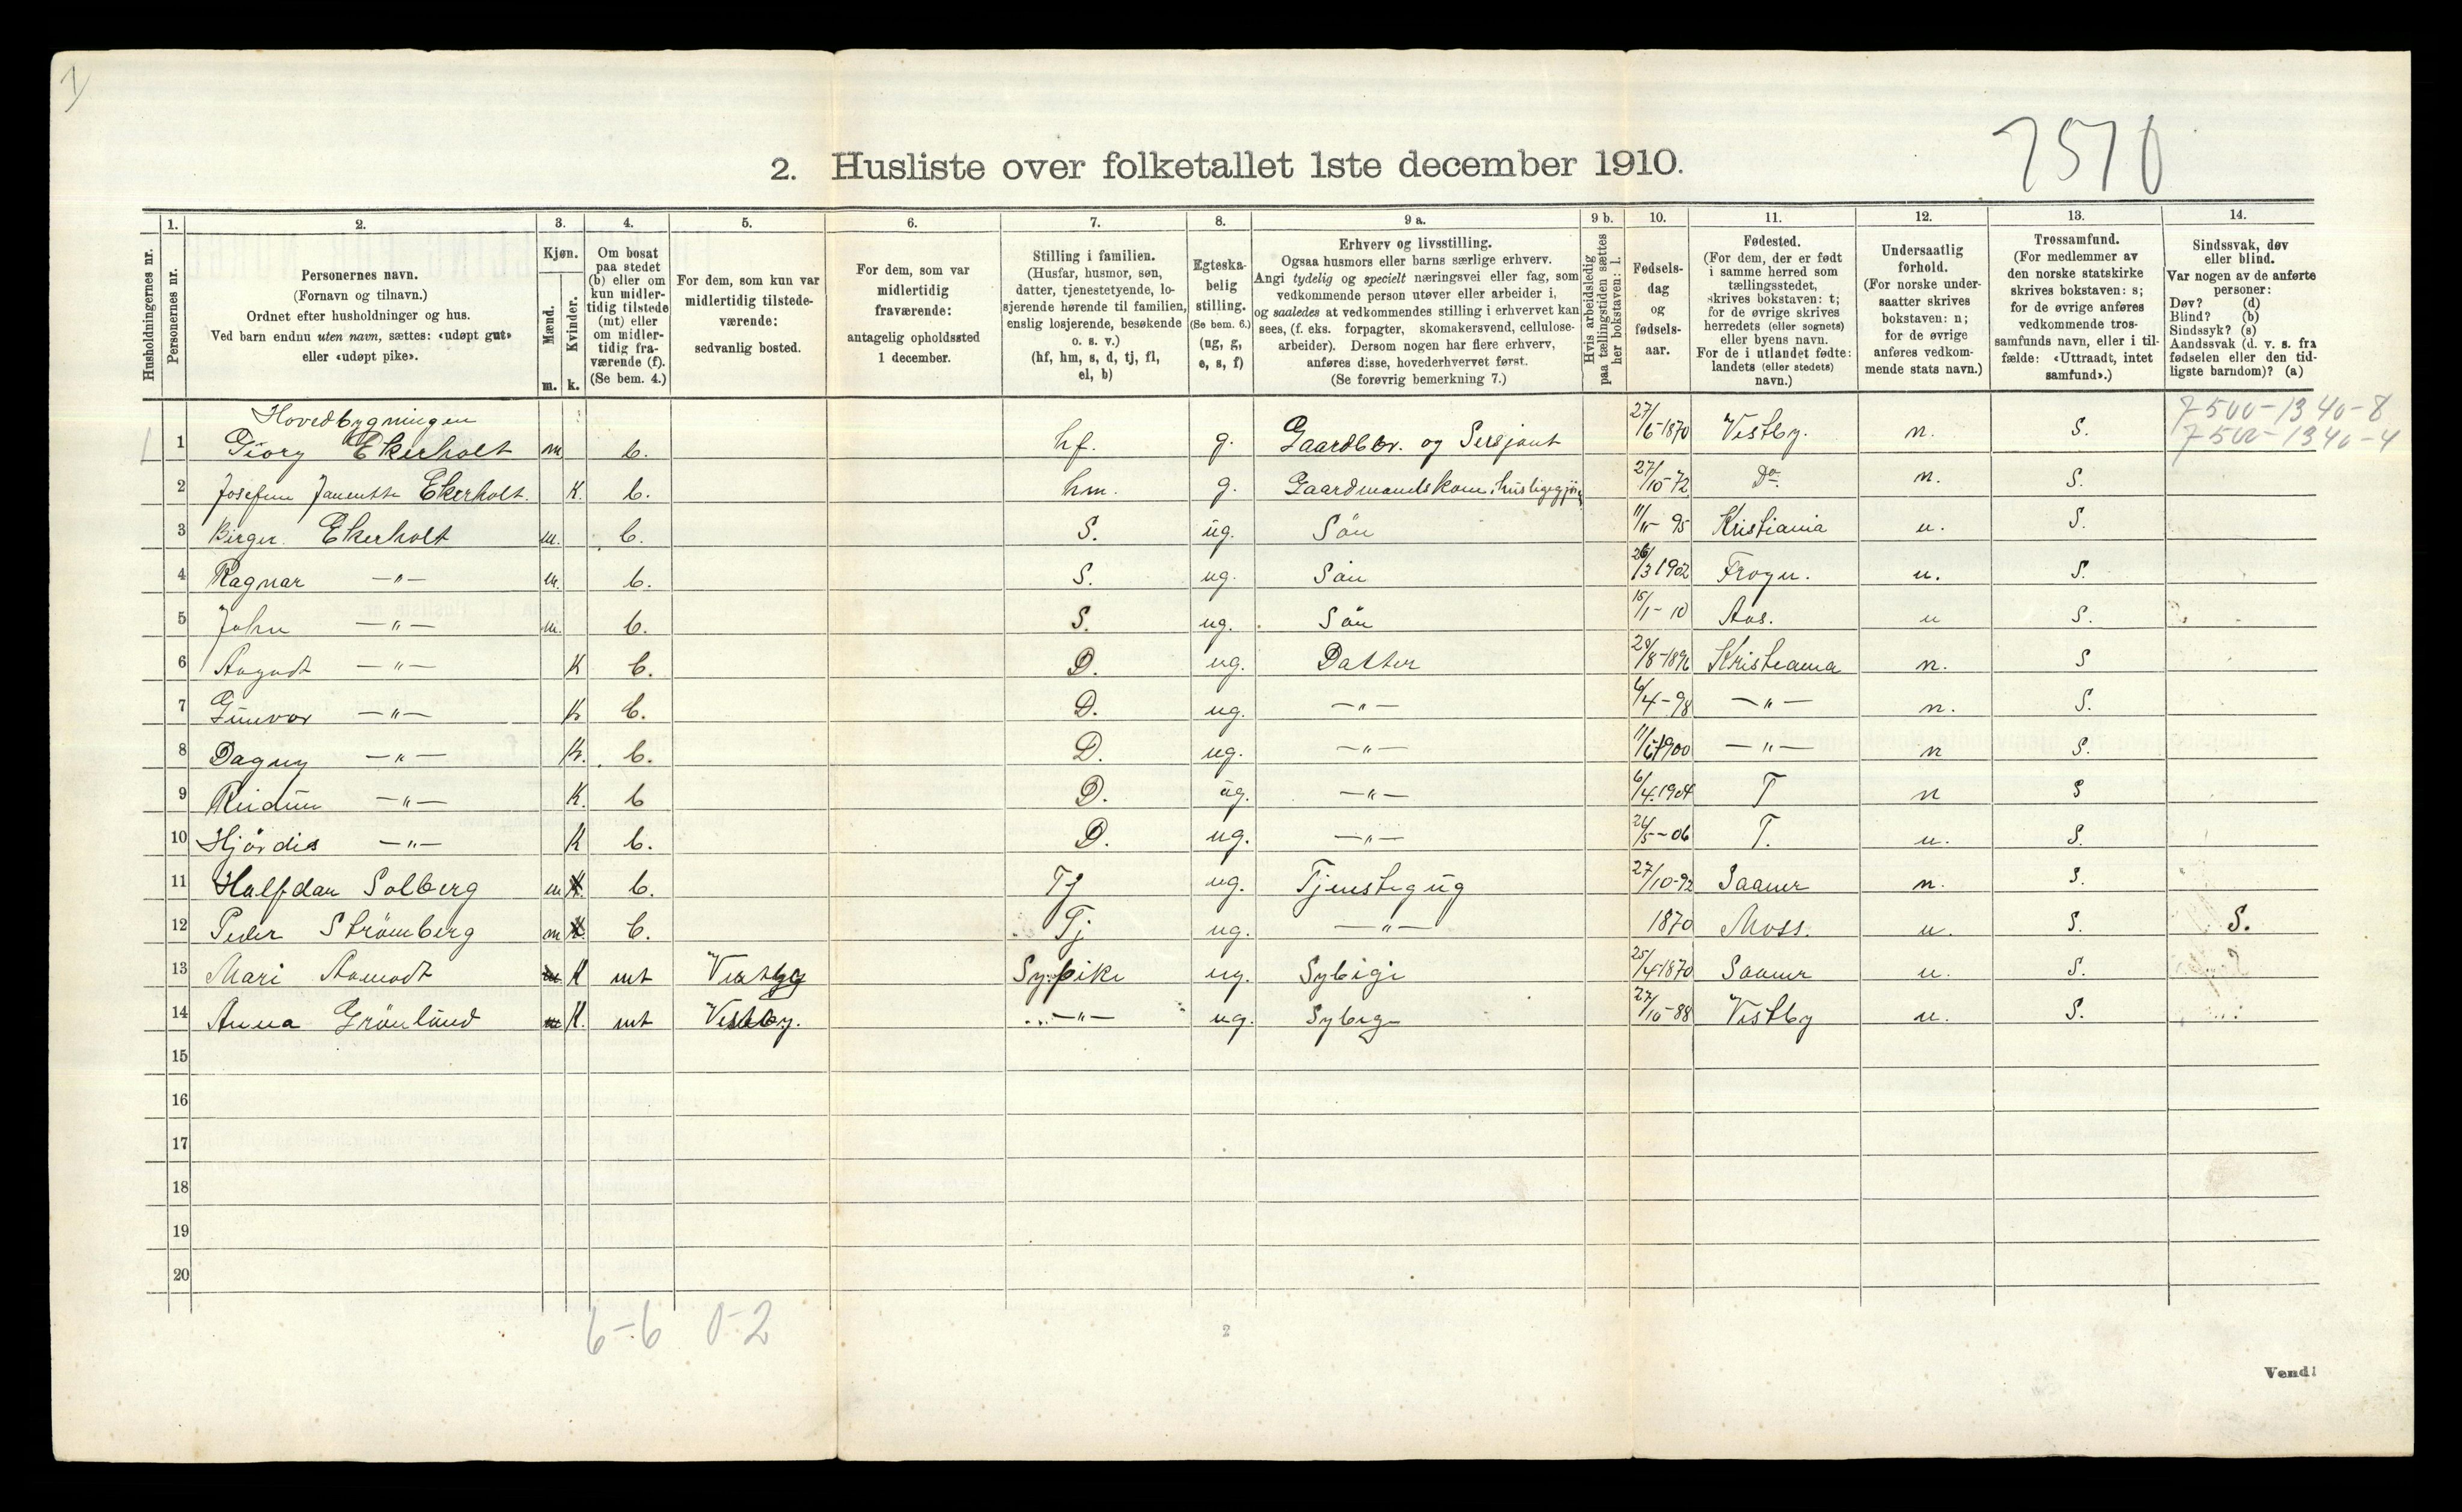 1)
7570
2. Husliste over folketallet 1ste december 1910.
Husholdningernes nr.
1. Personernes nr.
2. Personernes navn. (Fornavn og tilnavn.) Ordnet efter husholdninger og hus. Ved barn endnu uten navn, sættes: «udøpt gut» eller «udøpt pike».
3. Kjøn. Mænd. m. Kvinder. k.
4. Om bosat paa stedet (b) eller om kun midlertidig tilstede (mt) eller om midlertidig fraværende (f). (Se bem. 4.)
5. For dem, som kun var midlertidig tilstedeværende: sedvanlig bosted.
6. For dem, som var midlertidig fraværende: antagelig opholdssted 1 december.
7. Stilling i familien. (Husfar, husmor, søn, datter, tjenestetyende, losjerende hørende til familien, enslig losjerende, besøkende o. s. v.) (hf, hm, s, d, tj, fl, el, b)
8. Egteskabelig stilling. (Se bem. 6.) (ug, g, e, s, f)
9 a. Erhverv og livsstilling. Ogsaa husmors eller barns særlige erhverv. Angi tydelig og specielt næringsvei eller fag, som vedkommende person utøver eller arbeider i, og saaledes at vedkommendes stilling i erhvervet kan sees, (f. eks. forpagter, skomakersvend, cellulosearbeider). Dersom nogen har flere erhverv, anføres disse, hovederhvervet først. (Se forøvrig bemerkning 7.)
9 b. Hvis arbeidsledig paa tællingstiden sættes her bokstaven: l.
10. Fødselsdag og fødselsaar.
11. Fødested. (For dem, der er født i samme herred som tællingsstedet, skrives bokstaven: t; for de øvrige skrives herredets (eller sognets) eller byens navn. For de i utlandet fødte: landets (eller stedets) navn.)
12. Undersaatlig forhold. (For norske undersaatter skrives bokstaven: n; for de øvrige anføres vedkommende stats navn.)
13. Trossamfund. (For medlemmer av den norske statskirke skrives bokstaven: s; for de øvrige anføres vedkommende trossamfunds navn, eller i tilfælde: «Uttraadt, intet samfund».)
14. Sindssvak, døv eller blind. Var nogen av de anførte personer: Døv? (d) Blind? (b) Sindssyk? (s) Aandssvak (d. v. s. fra fødselen eller den tidligste barndom)? (a)
7-500-1340-8
7-500-1340-4
Hovedbygningen
1 1 Giorg Ekerholt m b. hf. g. Gaardbr. og Sersjant 27/6-1870 Vestby. n. S.
2 Josefine Janette Ekerholt. K. b. hm. g. Gaardmandskone, husligegjør 27/10-72 Do n. S.
3 Birger Ekerholt m. b. S. ug. Sön 95 Kristiania n. S.
4 Ragnar —"— m. b. S. ug. Sön 26/3 1902 Frogn. n. S.
5 John —"— m. b. S. ug. Sön 15/1-10 Aas. n S.
6 Aagodt —"— K b. D. ug. Datter 8-1896 Kristiania n. S
7 Gunvor —"— K b. D. ug. —"— 6/4-98 —"— n. S.
8 Dagny —"— K. b. D. ug. —"— 1900 —"— n S.
9 Reidun —"— K. b D. ug. —"— 6/4.1904 T n S
10 Hjördis —"— K b. D. ug. —"— 24/5-06 T. n. S.
11 Halfdan Solberg m K. b. Tj ug. Tjenstegug 27/10-92 Saaner n. S.
12 Peder Strömberg m K. b. Tj ug. —"— 1870 Moss. n. S. S.
13 Mari Aamodt m. K mt Vestby Sypike ug. Sybige 25/4 1870 Saaner n. S.
14 Anna Grönlund m K. mt Vestby. —"— ug. Sybige 27/10-88 Vestby n. S.
15
16
17
18
19
20
6-6 0-2
2
Vend!